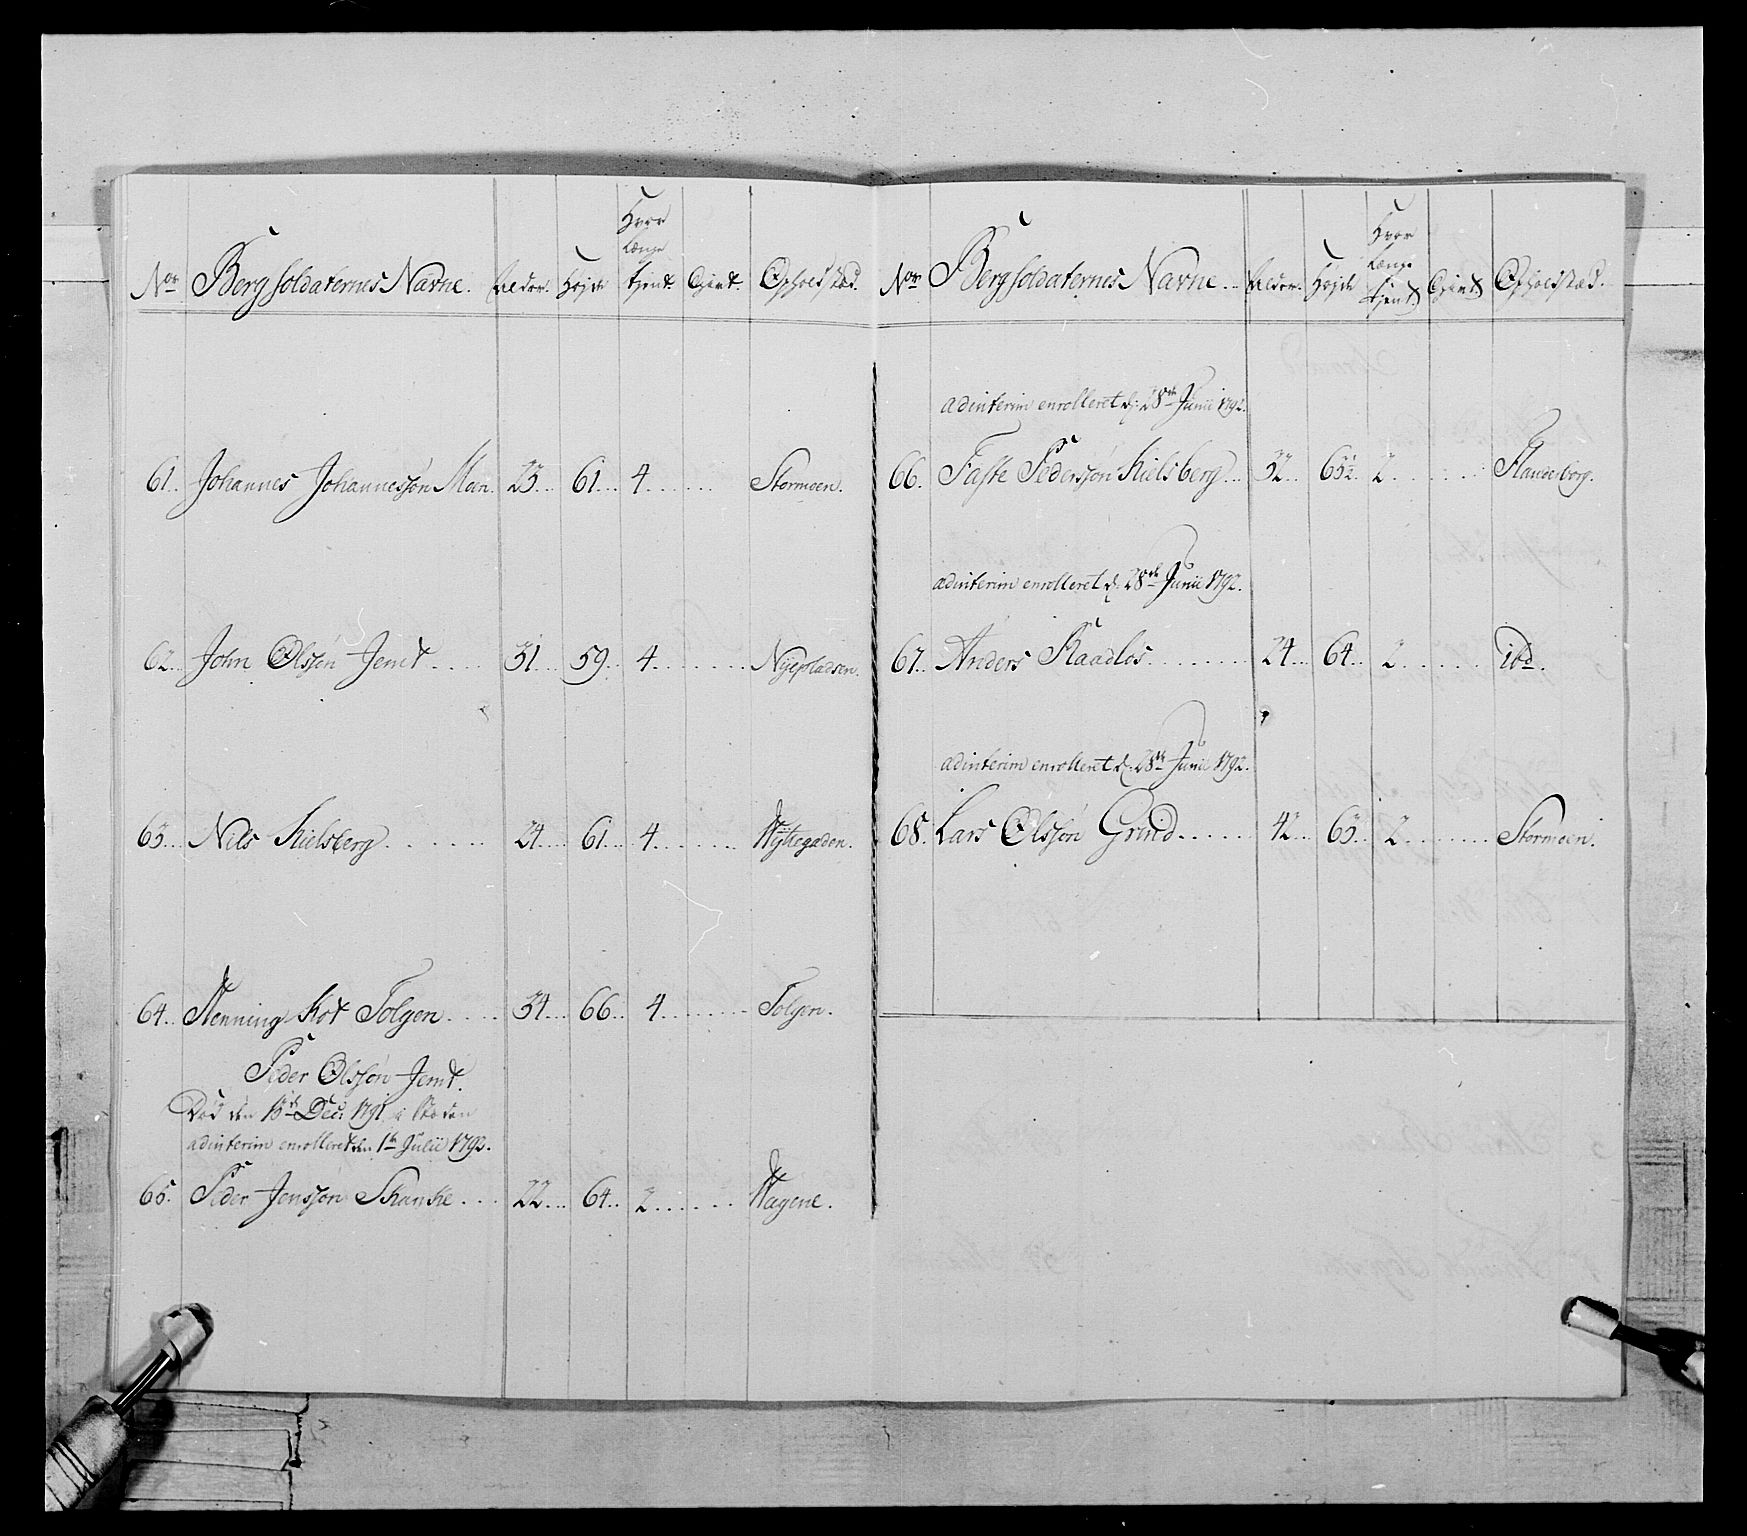 No Bergsoldaternes Navne. Alder. Højde Hvor længe tjent Opholdstæd.
61. Johannes Johannessøn Moen. 23. 61. 4. Stormoen.
62. John Olssøn Jemt. 31. 59. 4. Nyepladsen.
63. Nils Kielsberg. 24. 61. 4. Hyttegaden.
64. Henning Kot Tolgen. 34. 66. 4. Tolgen.
Peder Olssøn Jemt.
Død den 15de Dec: 1791
adinterim enrolleret den 1te Julii 1792.
65. Peder Jenssøn Skanke. 22. 64. 2. Hagene.
No Bergsoldaternes Navne. Alder. Højde Hvor længe tjent Opholdstæd.
adinterim enrolleret d: 28de Junii 1792.
66. Faste Pederssøn Kielsberg. 32. 63½. 2. Flanderborg.
adinterim enrolleret d: 28de Junii 1792.
67. Anders Kaadlos. 24. 64. 2. ibd.
adinterim enrolleret d: 28de Junii 1792.
68. Lars Olssøn Grind. 42. 63. 2. Stormoen.